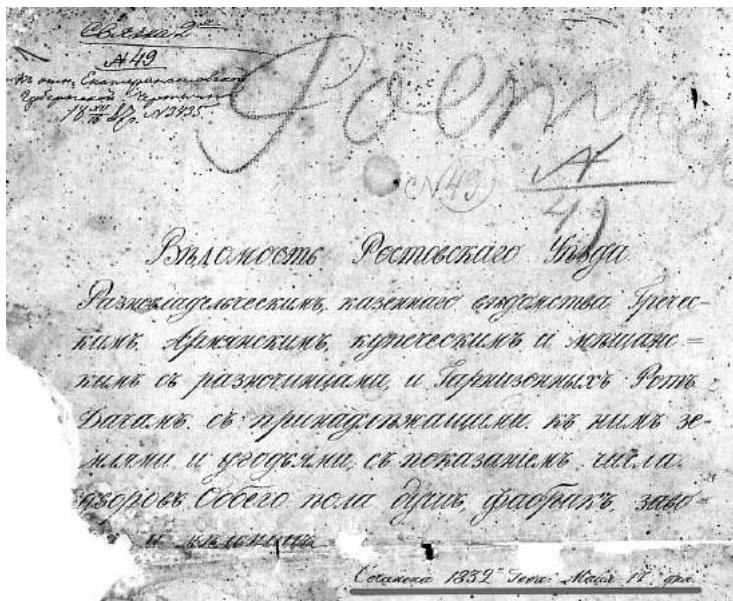 Связка 2ая
№49
Къ отн. Екатеринославской
Губернской Чертежной
18 XII/10 87. №3435.
Ростов
с№49
№
49
Вѣдомость Ростовскаго Уѣзда
Разновладельческимъ, казеннаго вѣдомства Гречес-
кимъ, Армянскимъ, купеческимъ и мѣщанс=
кимъ съ разночинцами, и Гарнизонныхъ Ротъ
Дачамъ съ принадлѣжащими къ нимъ зе-
млями и угодьями, съ показаніемъ числа
дворовъ Обѣего пола душъ, фабрикъ, заво=
и мѣльницъ
Сочинена 1832го Года: Майя 17 дня